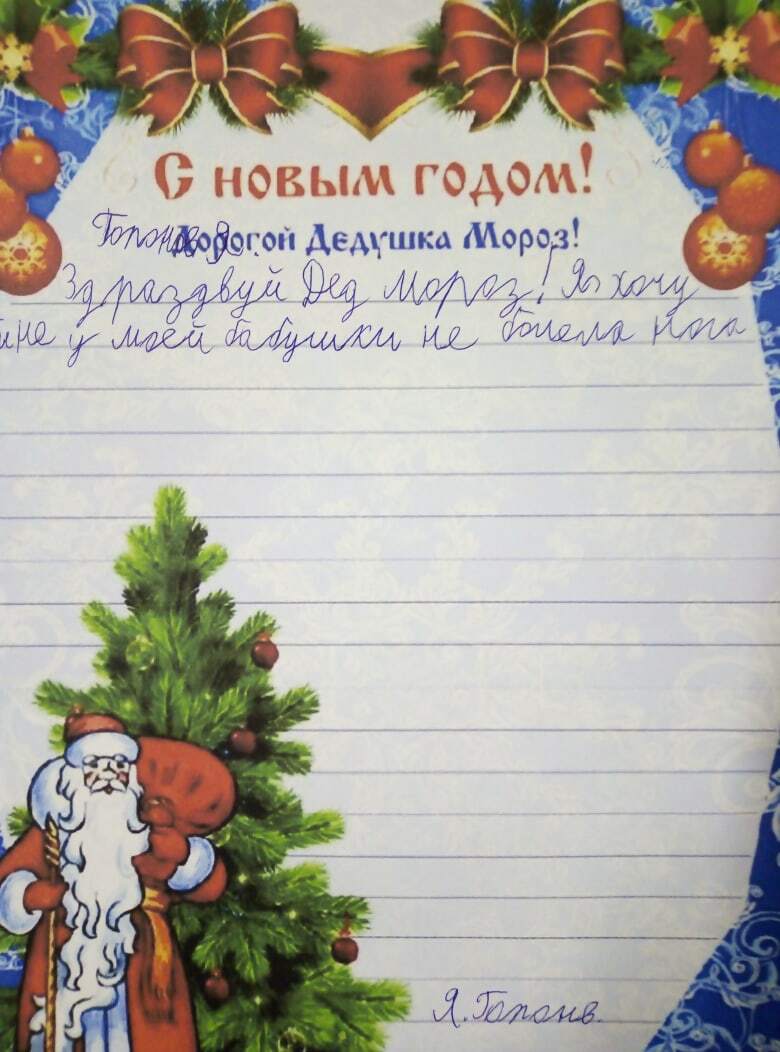 С новым годом!
Дорогой Дедушка Мороз!
Здраздвуй Дед Мороз! Я хочу
у моей бабушки не болела нога
Я. Гопонв.